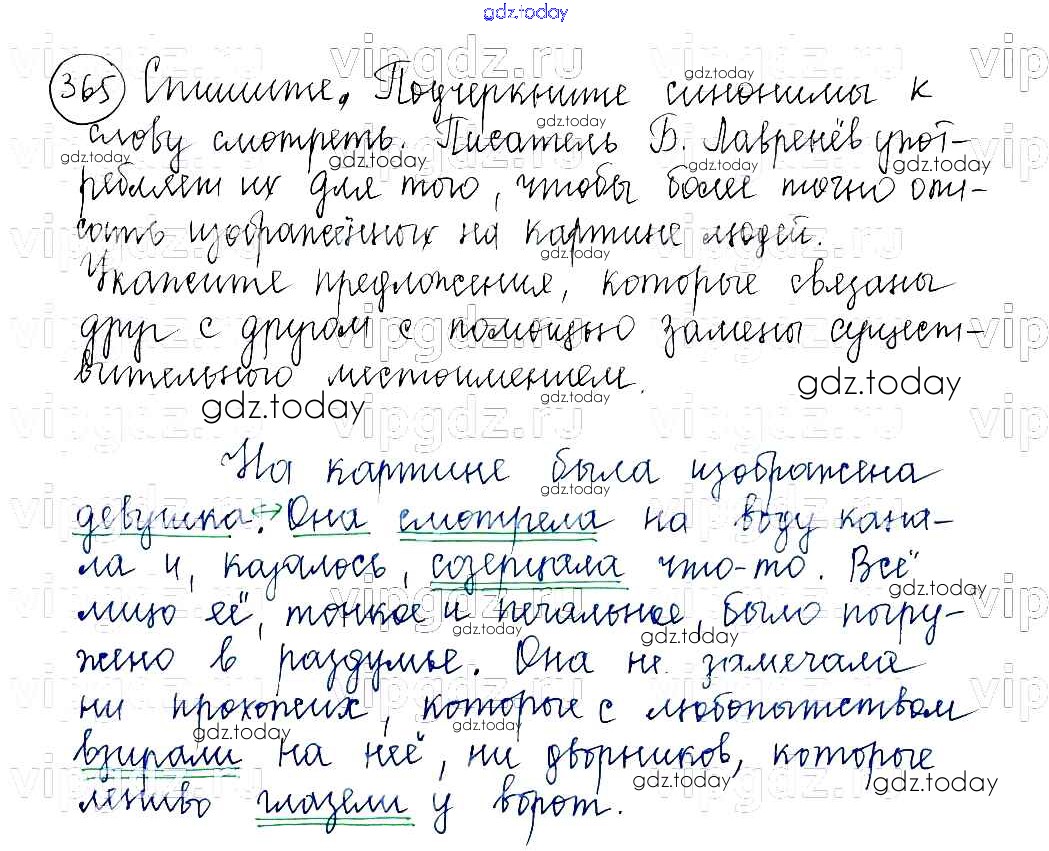 gdz.today
365 Спишите. Подчеркните синонимы к
слову смотреть. Писатель Б. Лавренёв упот-
ребляет их для того, чтобы более точно опи-
сать изображённых на картине людей.
Укажите предложения, которые связаны
друг с другом с помощью замены сущест-
вительного местоимением.
На картине была изображена
девушка. ↔ Она смотрела на воду кана-
ла и, казалось, созерцала что-то. Всё
лицо её, тонкое и печальное, было погру-
жено в раздумье. Она не замечала
ни прохожих, которые с любопытством
взирали на неё, ни дворников, которые
лениво глазели у ворот.